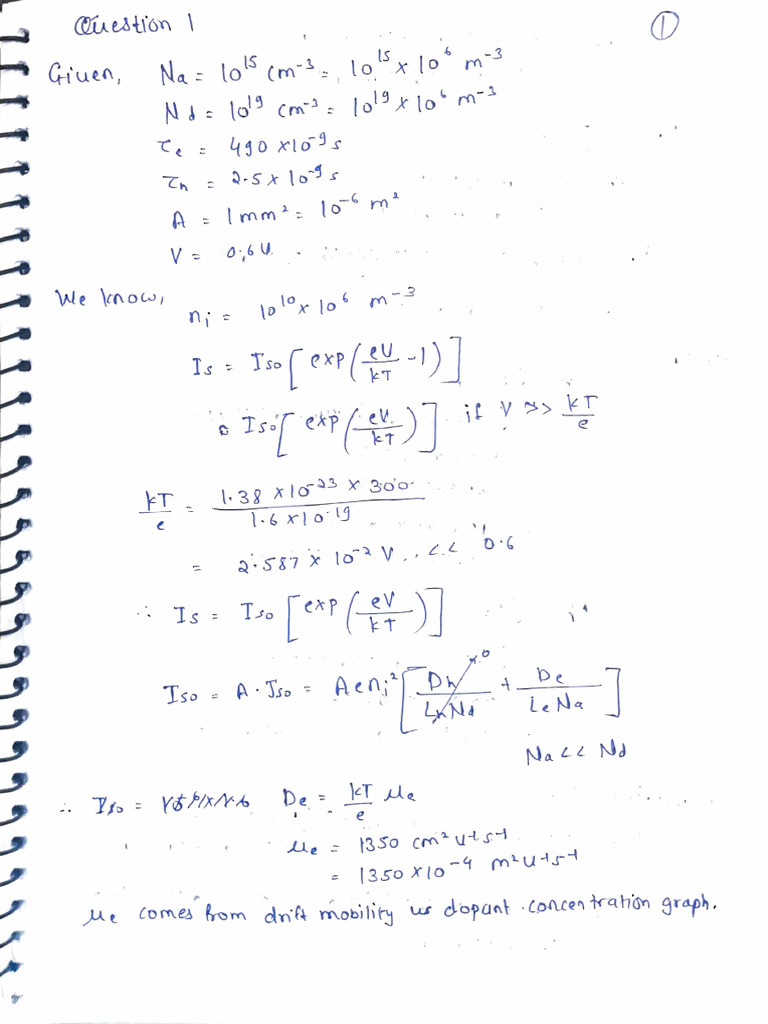 Question 1
①
Given, Na = 10¹⁵ cm⁻³ = 10¹⁵ × 10⁶ m⁻³
Nd = 10¹⁹ cm⁻³ = 10¹⁹ × 10⁶ m⁻³
τe = 490 × 10⁻⁹ s
τh = 2.5 × 10⁻⁹ s
A = 1 mm² = 10⁻⁶ m²
V = 0.6 V.
We know,
ni = 10¹⁰ × 10⁶ m⁻³
Is = Iso [exp (eV/kT - 1)]
Iso [exp (eV/kT)] if V >> kT/e
kT/e = 1.38 × 10⁻²³ × 300 / 1.6 × 10⁻¹⁹
= 2.587 × 10⁻² V .. << 0.6
∴ Is = Iso [exp (eV/kT)]
Iso = A · Jso = A e ni² [Dh/LhNd + De/LeNa]
0
Na << Nd
∴ Iso = De = kT/e μe
μe = 1350 cm² V⁻¹ s⁻¹
= 1350 × 10⁻⁴ m² V⁻¹ s⁻¹
μe comes from drift mobility vs dopant concentration graph.